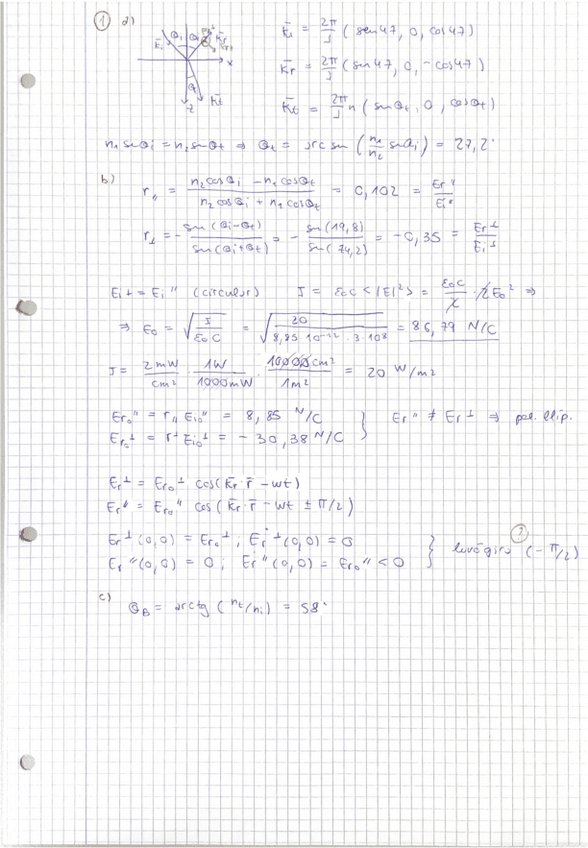 ① a)
θi θr k̄i k̄r x
θt z k̄t
k̄i = 2π/λ (sen47, 0, cos47)
k̄r = 2π/λ (sen47, 0, -cos47)
k̄t = 2π/λ n (senθt, 0, cosθt)
n1 senθi = n2 senθt ⇒ θt = arcsen (n1/n2 senθi) = 27,2°
b)
r∥ = (n2cosθi - n1cosθt)/(n2cosθi + n1cosθt) = 0,102 = Er∥/Ei∥
r⊥ = - sen(θi-θt)/sen(θi+θt) = - sen(19,8)/sen(74,2) = -0,35 = Er⊥/Ei⊥
Ei⊥ = Ei∥ (circular) I = ε0c <|E|²> = ε0c/2 · 2E0² ⇒
⇒ E0 = √(I/ε0c) = √(20/(8,85·10⁻¹²·3·10⁸)) = 86,79 N/C
I = 2mW/cm² · 1W/1000mW · 10000cm²/1m² = 20 W/m²
Er0∥ = r∥ Ei0∥ = 8,85 N/C
Er0⊥ = r⊥ Ei0⊥ = -30,38 N/C } Er∥ ≠ Er⊥ ⇒ pol. elip.
Er⊥ = Er0⊥ cos(k̄r·r̄ - wt)
Er∥ = Er0∥ cos(k̄r·r̄ - wt ± π/2)
Er⊥(0,0) = Er0⊥ ; Ėr⊥(0,0) = 0
Er∥(0,0) = 0 ; Ėr∥(0,0) = Er0∥ < 0 } levógira (-π/2) ?
c)
θB = arctg (nt/ni) = 58°